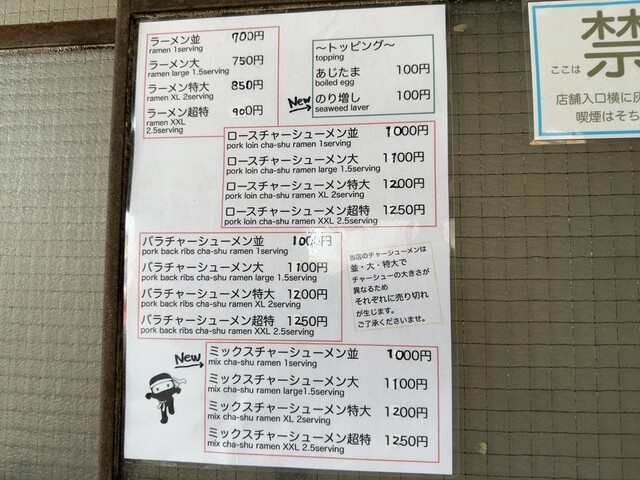 ラーメン並 700円
ramen 1serving
ラーメン大 750円
ramen large 1.5serving
ラーメン特大 850円
ramen XL 2serving
ラーメン超特 900円
ramen XXL
2.5serving
～トッピング～
topping
あじたま 100円
boiled egg
New
のり増し 100円
seaweed laver
ロースチャーシューメン並 1000円
pork loin cha-shu ramen 1serving
ロースチャーシューメン大 1100円
pork loin cha-shu ramen large 1.5serving
ロースチャーシューメン特大 1200円
pork loin cha-shu ramen XL 2serving
ロースチャーシューメン超特 1250円
pork loin cha-shu ramen XXL 2.5serving
バラチャーシューメン並 1000円
pork back ribs cha-shu ramen 1serving
バラチャーシューメン大 1100円
pork back ribs cha-shu ramen large 1.5serving
バラチャーシューメン特大 1200円
pork back ribs cha-shu ramen XL 2serving
バラチャーシューメン超特 1250円
pork back ribs cha-shu ramen XXL 2.5serving
当店のチャーシューメンは
並・大・特大で
チャーシューの大きさが
異なるため
それぞれに売り切れ
が生じます。
ご了承くださいませ。
New
ミックスチャーシューメン並 1000円
mix cha-shu ramen 1serving
ミックスチャーシューメン大 1100円
mix cha-shu ramen large1.5serving
ミックスチャーシューメン特大 1200円
mix cha-shu ramen XL 2serving
ミックスチャーシューメン超特 1250円
mix cha-shu ramen XXL 2.5serving
ここは 禁
店舗入口横に灰
喫煙はそち